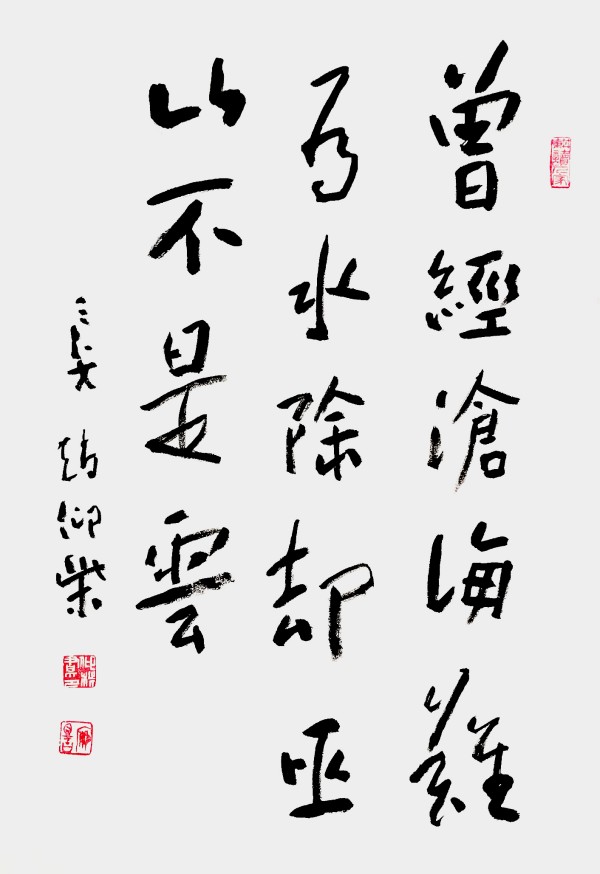 曾經滄海難
為水除却巫
山不是雲
仰柴